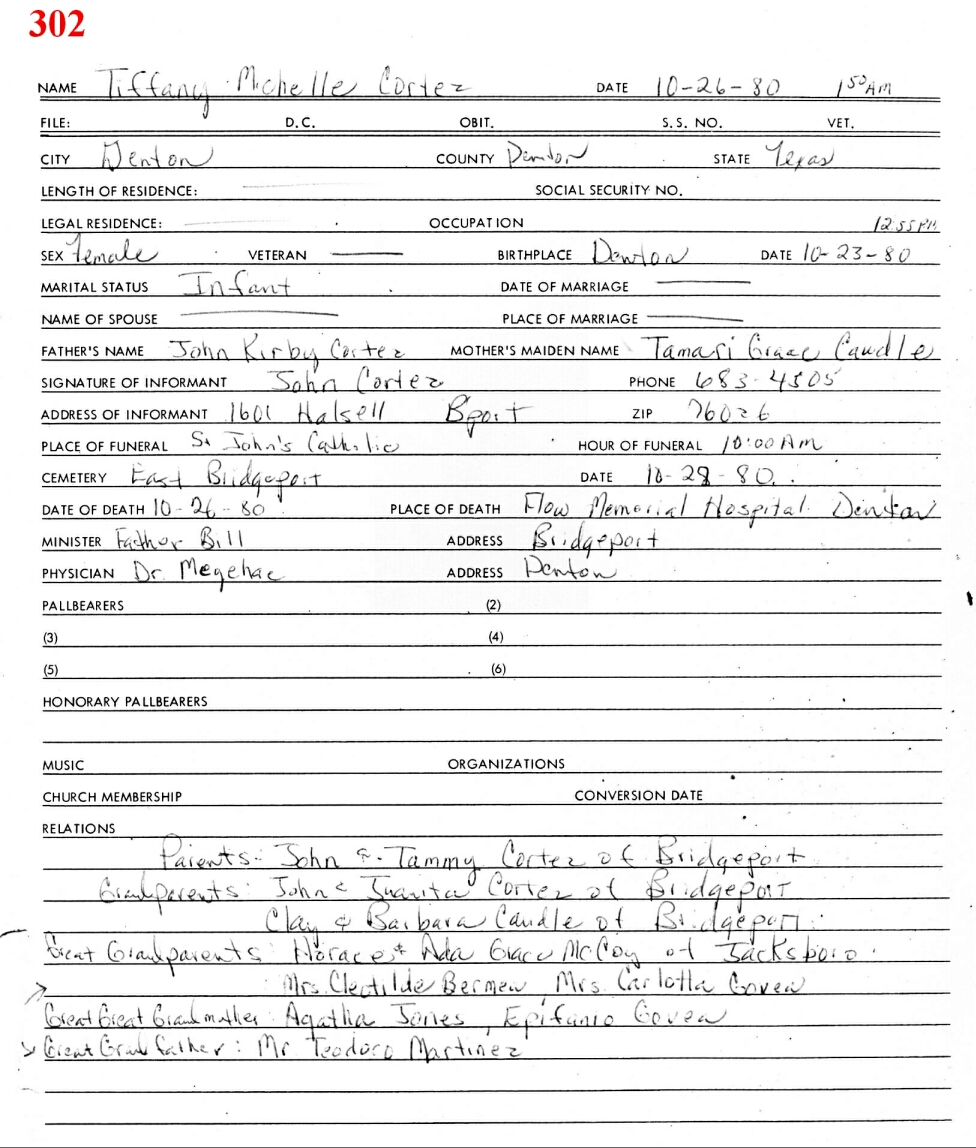 302
NAME Tiffany Michelle Cortez DATE 10-26-80 1 50 AM
FILE: D.C. OBIT. S.S. NO. VET.
CITY Denton COUNTY Denton STATE Texas
LENGTH OF RESIDENCE: SOCIAL SECURITY NO.
LEGAL RESIDENCE: OCCUPATION 12:55 PM
SEX Female VETERAN BIRTHPLACE Denton DATE 10-23-80
MARITAL STATUS Infant DATE OF MARRIAGE
NAME OF SPOUSE PLACE OF MARRIAGE
FATHER'S NAME John Kirby Cortez MOTHER'S MAIDEN NAME Tamari Grace Caudle
SIGNATURE OF INFORMANT John Cortez PHONE 683-4505
ADDRESS OF INFORMANT 1601 Halsell Bport ZIP 76026
PLACE OF FUNERAL St John's Catholic HOUR OF FUNERAL 10:00 AM
CEMETERY East Bridgeport DATE 10-28-80
DATE OF DEATH 10-26-80 PLACE OF DEATH Flow Memorial Hospital Denton
MINISTER Father Bill ADDRESS Bridgeport
PHYSICIAN Dr. ADDRESS Denton
PALLBEARERS (2)
(3) (4)
(5) (6)
HONORARY PALLBEARERS
MUSIC ORGANIZATIONS
CHURCH MEMBERSHIP CONVERSION DATE
RELATIONS
Parents: John & Tammy Cortez of Bridgeport
Grandparents: John & Juanita Cortez of Bridgeport
Clay & Barbara Caudle of Bridgeport
Great Grandparents: Horace & Ada Grace McCoy of Jacksboro
Mrs. Cleotilde Bermea, Mrs. Carlotta Govea
Great Great Grandmother: Agatha Jones, Epifanio Govea
Great Grandfather: Mr. Teodoro Martinez